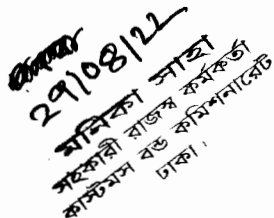 29/08/22
মনিকা সাহা
সহকারী রাজস্ব কর্মকর্তা
কাস্টমস বন্ড কমিশনারেট
ঢাকা।